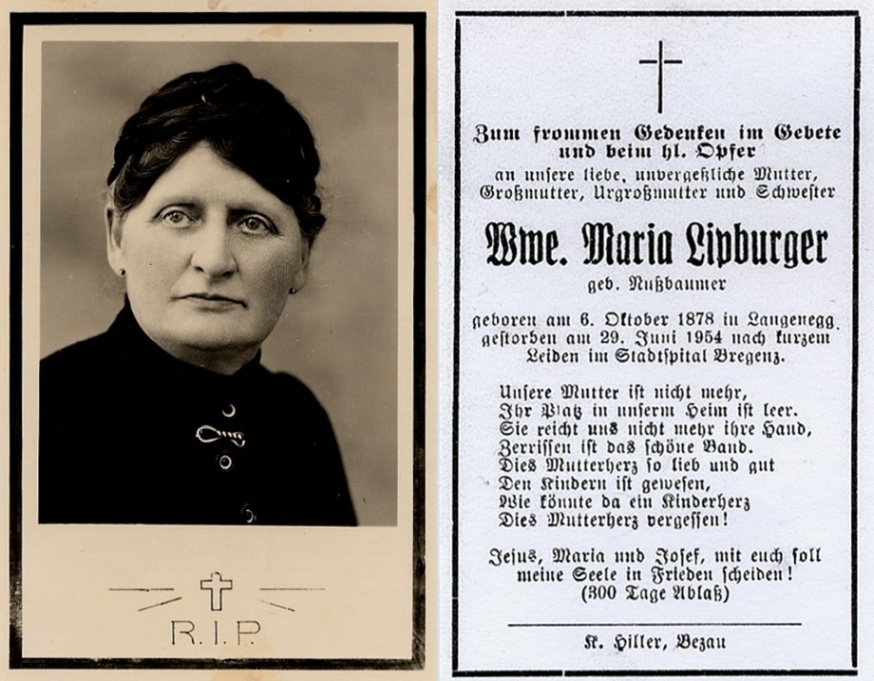 R.I.P.
Zum frommen Gedenken im Gebete
und beim hl. Opfer
an unsere liebe, unvergeßliche Mutter,
Großmutter, Urgroßmutter und Schwester
Wwe. Maria Lipburger
geb. Nußbaumer
geboren am 6. Oktober 1878 in Langenegg,
gestorben am 29. Juni 1954 nach kurzem
Leiden im Stadtspital Bregenz.
Unsere Mutter ist nicht mehr,
Ihr Platz in unserm Heim ist leer.
Sie reicht uns nicht mehr ihre Hand,
Zerrissen ist das schöne Band.
Dies Mutterherz so lieb und gut
Den Kindern ist gewesen,
Wie könnte da ein Kinderherz
Dies Mutterherz vergessen!
Jesus, Maria und Josef, mit euch soll
meine Seele in Frieden scheiden!
(300 Tage Ablaß)
K. Hiller, Bezau